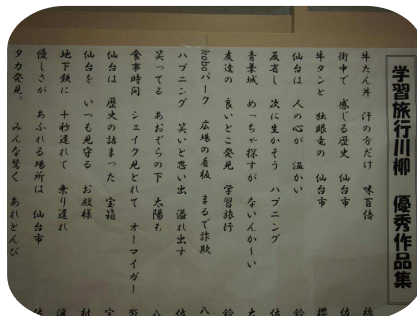 学習旅行川柳 優秀作品集
牛たん丼 汗の分だけ 味百倍
街中で 感じる歴史 仙台市
牛タンと 独眼竜の 仙台市
仙台は 人の心が 温かい
反省し 次に生かそう ハプニング
青葉城 めっちゃ探すが ないんかーい
友達の 良いとこ発見 学習旅行
boboパーク 広場の看板 まるで詐欺
ハプニング 笑いと思い出 溢れ出す
笑ってる あおぞらの下 太陽も
食事時間 シェイク見とれて オーマイガー
仙台は 歴史の詰まった 宝箱
仙台を いつも見守る お殿様
地下鉄に 十秒遅れて 乗り遅れ
優しさが あふれる場所は 仙台市
タカ発見。 みんな驚く あれとんび